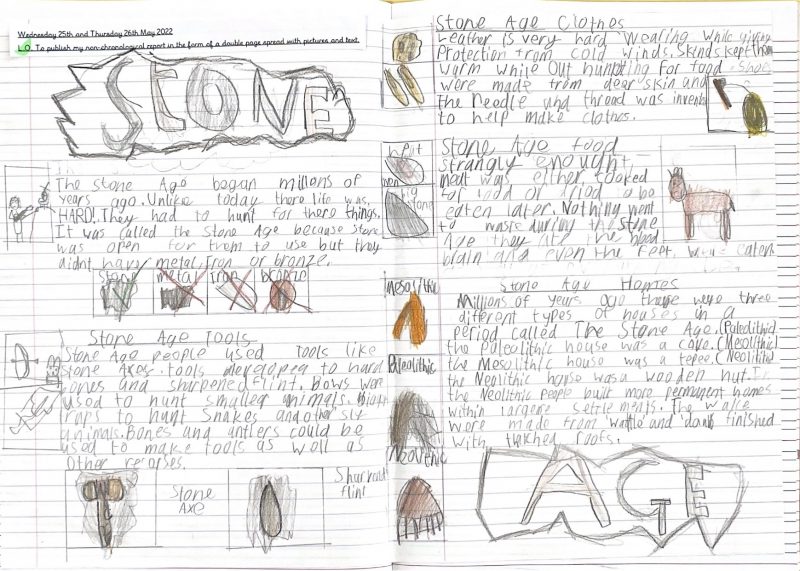 Wednesday 25th and Thursday 26th May 2022
L.O. To publish my non-chronological report in the form of a double page spread with pictures and text.
STONE
The Stone Age began millons of
years ago. Unlike today there life was
HARD! They had to hunt for there things.
It was called the Stone Age because Stone
was open for them to use but they
didnt have metal, iron or bronze.
Stone metal Iron bronze
Stone Age Tools
Stone Age people used tools like
Stone Axes. tools developed to hard
bones and sharpened flint. Bows were
used to hunt smaller animals.
traps to hunt snakes and other sly
animals. Bones and antlers could be
used to make tools as well as
other
Stone
Axe
Sharpend
flint
Stone Age Clothes
Leather is very hard wearing while giving
Protection from cold winds. Skinds kept them
warm while out hunting for food. Shoes
were made from dear skin and
the Needle and thread was invented
to help make clothes.
Stone Age food
Strangly enough,
meat was either cooked
for food or fried to be
eaten later. Nothing went
to waste during the Stone
Age they ate the blood
brain and even the feet. were eaten
Stone Age Homes
Mesolithic
Millions of years ago there were three
different types of houses in a
period called The Stone Age. (Paleolithic)
the Paleolithic house was a cave. (Mesolithic)
the Mesolithic house was a tepee. (Neolithic)
the Neolithic house was a wooden hut.
the Neolithic people built more permanent homes
within largere settlements. The walls
were made from wattle and daub finished
with thatched roofs.
Paleolithic
Neolithic
AGE